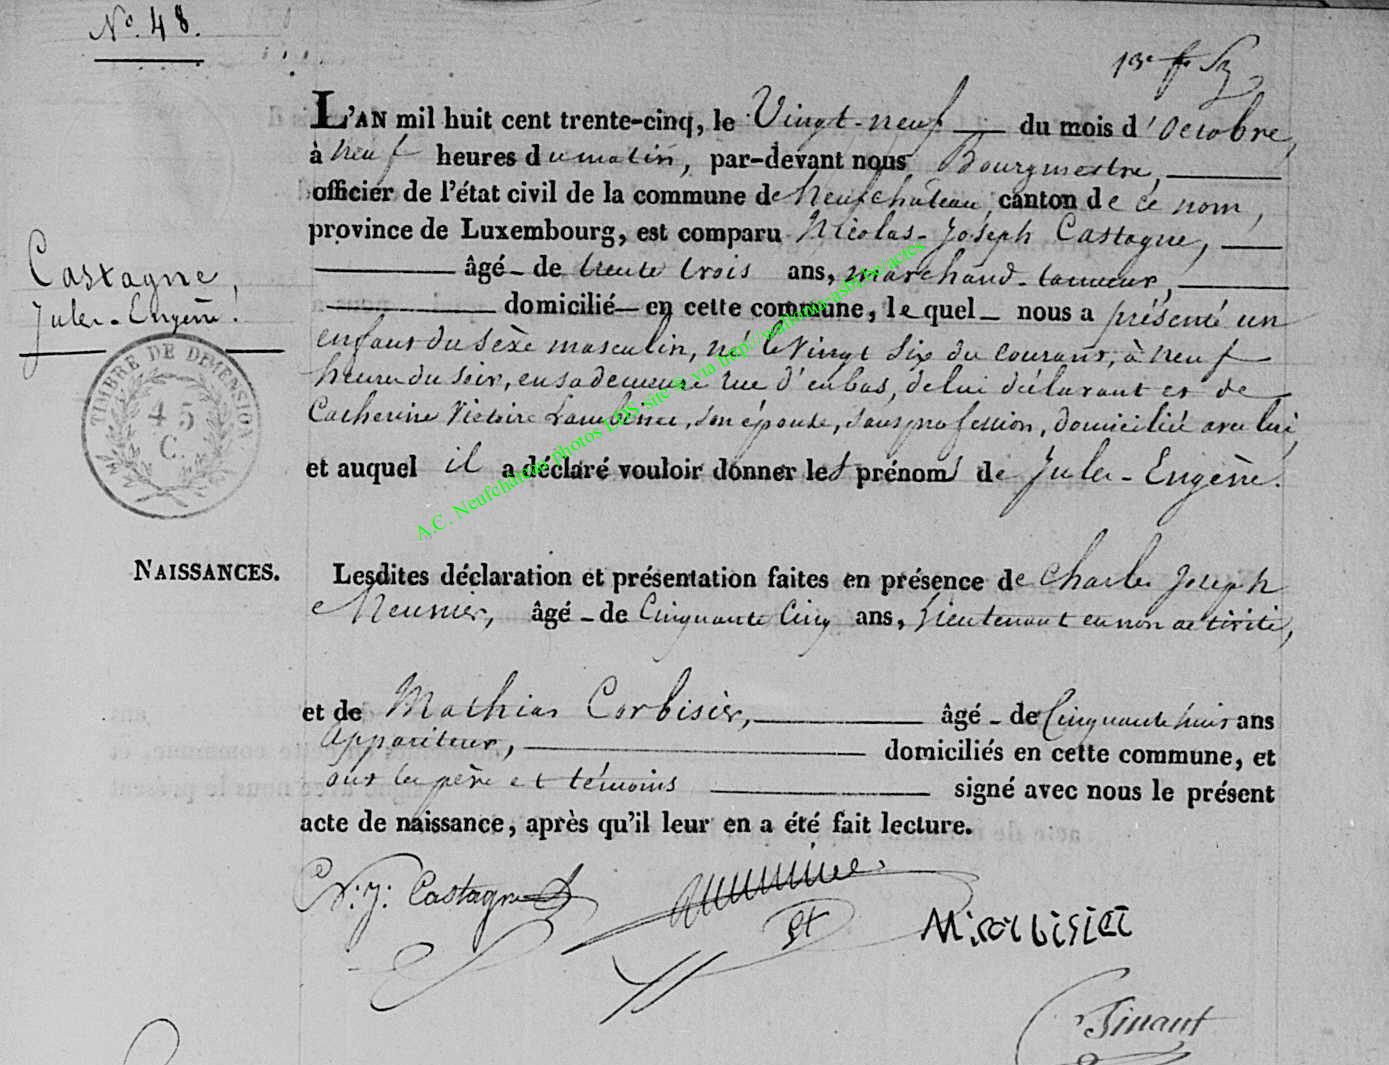 N°. 48.
L'AN mil huit cent trente-cinq, le Vingt-neuf du mois d'octobre,
à neuf heures du matin, par-devant nous Bourgmestre,
officier de l'état civil de la commune de Neufchâteau, canton de ce nom,
province de Luxembourg, est comparu Nicolas-Joseph Castagne,
âgé - de trente trois ans, marchand-tanneur,
domicilié - en cette commune, le quel - nous a présenté un
enfant du sèxe masculin, né le Vingt six du courant, à neuf
heures du soir, en sa demeure rue d'enbas, de lui déclarant et de
Catherine Victoire Lambinet, son épouse, sans profession, domiciliée avec lui,
et auquel il a déclaré vouloir donner les prénoms de Jules-Eugène.
Castagne,
Jules-Eugène.
TIMBRE DE DIMENSION
45
C.
NAISSANCES.
Lesdites déclaration et présentation faites en présence de Charles Joseph
Meunier, âgé - de Cinquante Cinq ans, Lieutenant en non activité,
et de Mathias Corbisier, âgé - de Cinquante huit ans
appariteur, domiciliés en cette commune, et
ont les père et témoins signé avec nous le présent
acte de naissance, après qu'il leur en a été fait lecture.
N: J: Castagne
M: corbisier
A.C. Neufchâteau photos LDS site © via http://wallonica.sb.be/actes